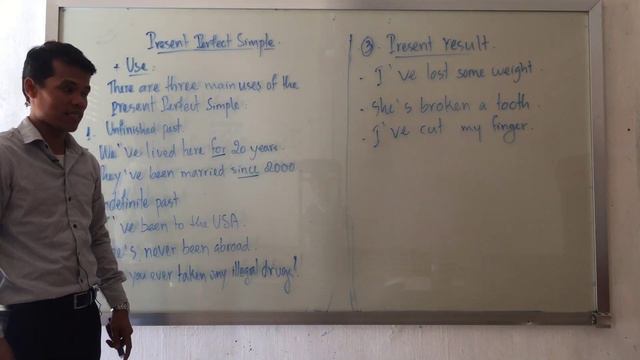 Present Perfect Simple.
+ Use:
There are three main uses of the
Present Perfect Simple:
1. Unfinished past.
We've lived here for 20 years.
They've been married since 2000.
ndefinite past
've been to the USA.
e's never been abroad.
you ever taken any illegal drugs?
③. Present result.
- I've lost some weight.
- She's broken a tooth.
- I've cut my finger.